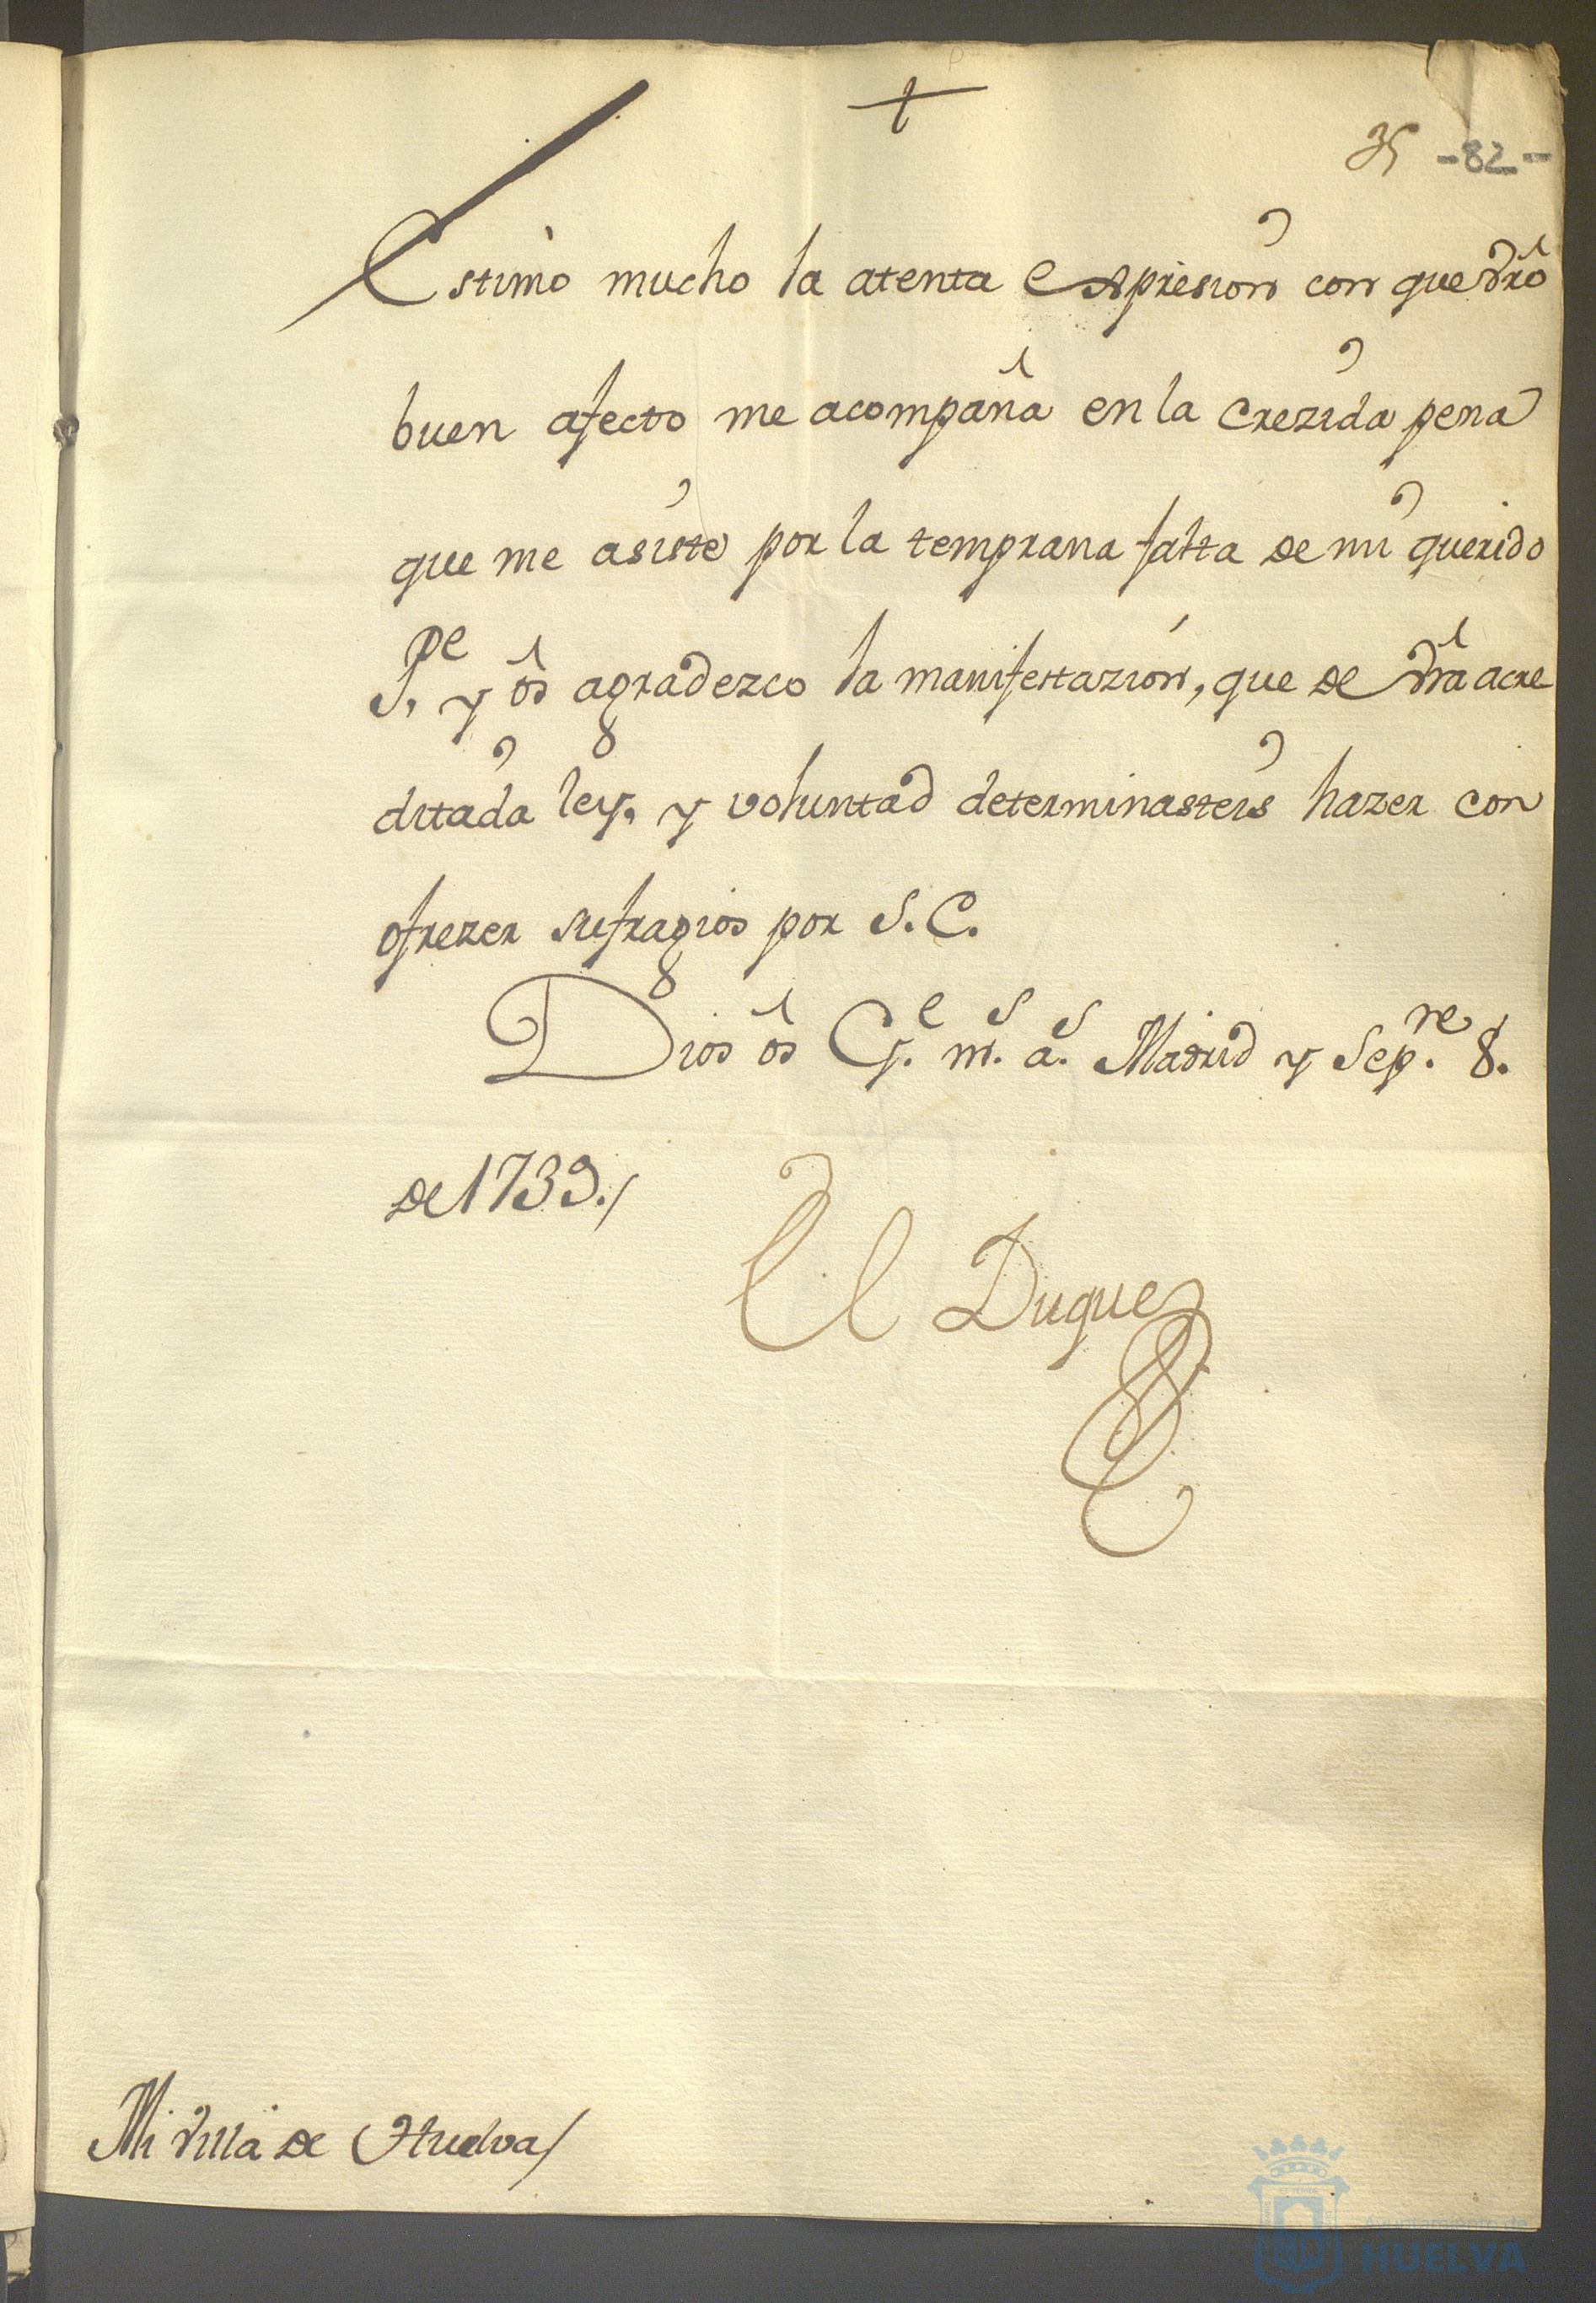 +
35 -82-
Estimo mucho la atenta expresion con que vrõ
buen afecto me acompaña en la crezida pena
que me asiste por la temprana falta de mi querido
Pe y os agradezco la manifestazion, que de vrã acre
ditada ley, y voluntad determinasteis hazer con
ofrezer sufragios por S.E.
Dios os G.e m.s a.s Madrid y Sep.re 8.
de 1739./
El Duque
Mi villa de Huelva/
Ayuntamiento de
HUELVA